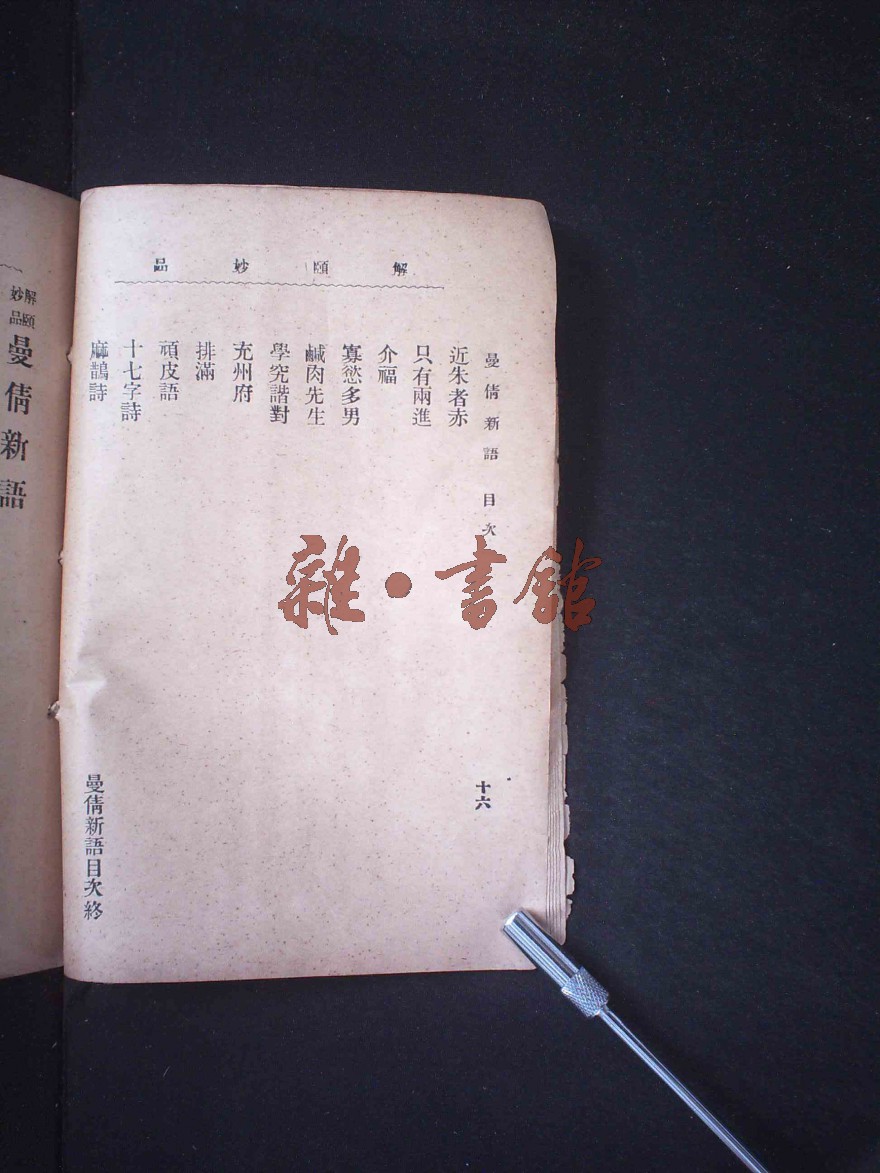 解頤妙品
曼倩新語 目次
十六
近朱者赤
只有兩進
介福
寡慾多男
鹹肉先生
學究諧對
充州府
排滿
頑皮語
十七字詩
麻鵲詩
曼倩新語目次終
解頤
妙品
曼倩新語
雜·書館